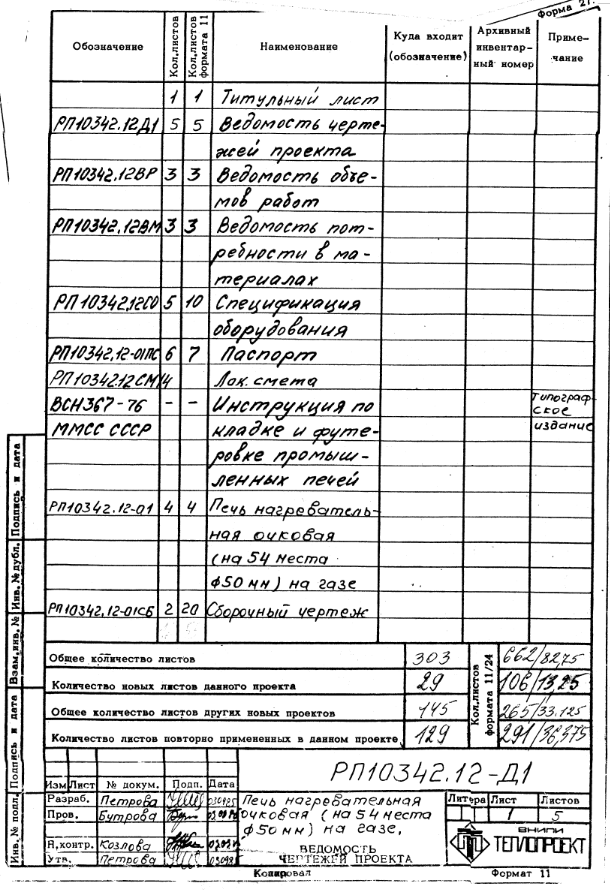 Форма 21.
Обозначение
Кол.листов
Кол.листов формата 11
Наименование
Куда входит (обозначение)
Архивный инвентар- ный номер
Приме- чание
1 1 Титульный лист
РП10342.12Д1 5 5 Ведомость черте-
жей проекта
РП10342.12ВР 3 3 Ведомость объе-
мов работ
РП10342.12ВМ 3 3 Ведомость пот-
ребности в ма-
териалах
РП10342.12СО 5 10 Спецификация
оборудования
РП10342.12-01ПС 6 7 Паспорт
РП10342.12СМ 14 Лок. смета
ВСН367-76 - - Инструкция по типограф-
ММСС СССР кладке и футе- ское
ровке промыш- издание
ленных печей
РП10342.12-01 4 4 Печь нагреватель-
ная очковая
(на 54 места
ф50 мм) на газе
РП10342.12-01СБ 2 20 Сборочный чертеж
Общее количество листов 303
Количество новых листов данного проекта 29
Общее количество листов других новых проектов 145
Количество листов повторно примененных в данном проекте 129
Кол.листов формата 11/24
662/82,75
106/13,25
265/33.125
291/36,375
Инв. № подл. Подпись и дата Взам.инв. № Инв. № дубл. Подпись и дата
РП10342.12-Д1
Изм Лист № докум. Подп. Дата
Разраб. Петрова 030985
Пров. Бутрова
Н.контр. Козлова
Утв. Петрова 030985
Печь нагревательная
очковая (на 54 места
ф50 мм) на газе.
ВЕДОМОСТЬ
ЧЕРТЕЖЕЙ ПРОЕКТА
Литера Лист Листов
1 5
ВНИПИ
ТЕПЛОПРОЕКТ
Копировал Формат 11